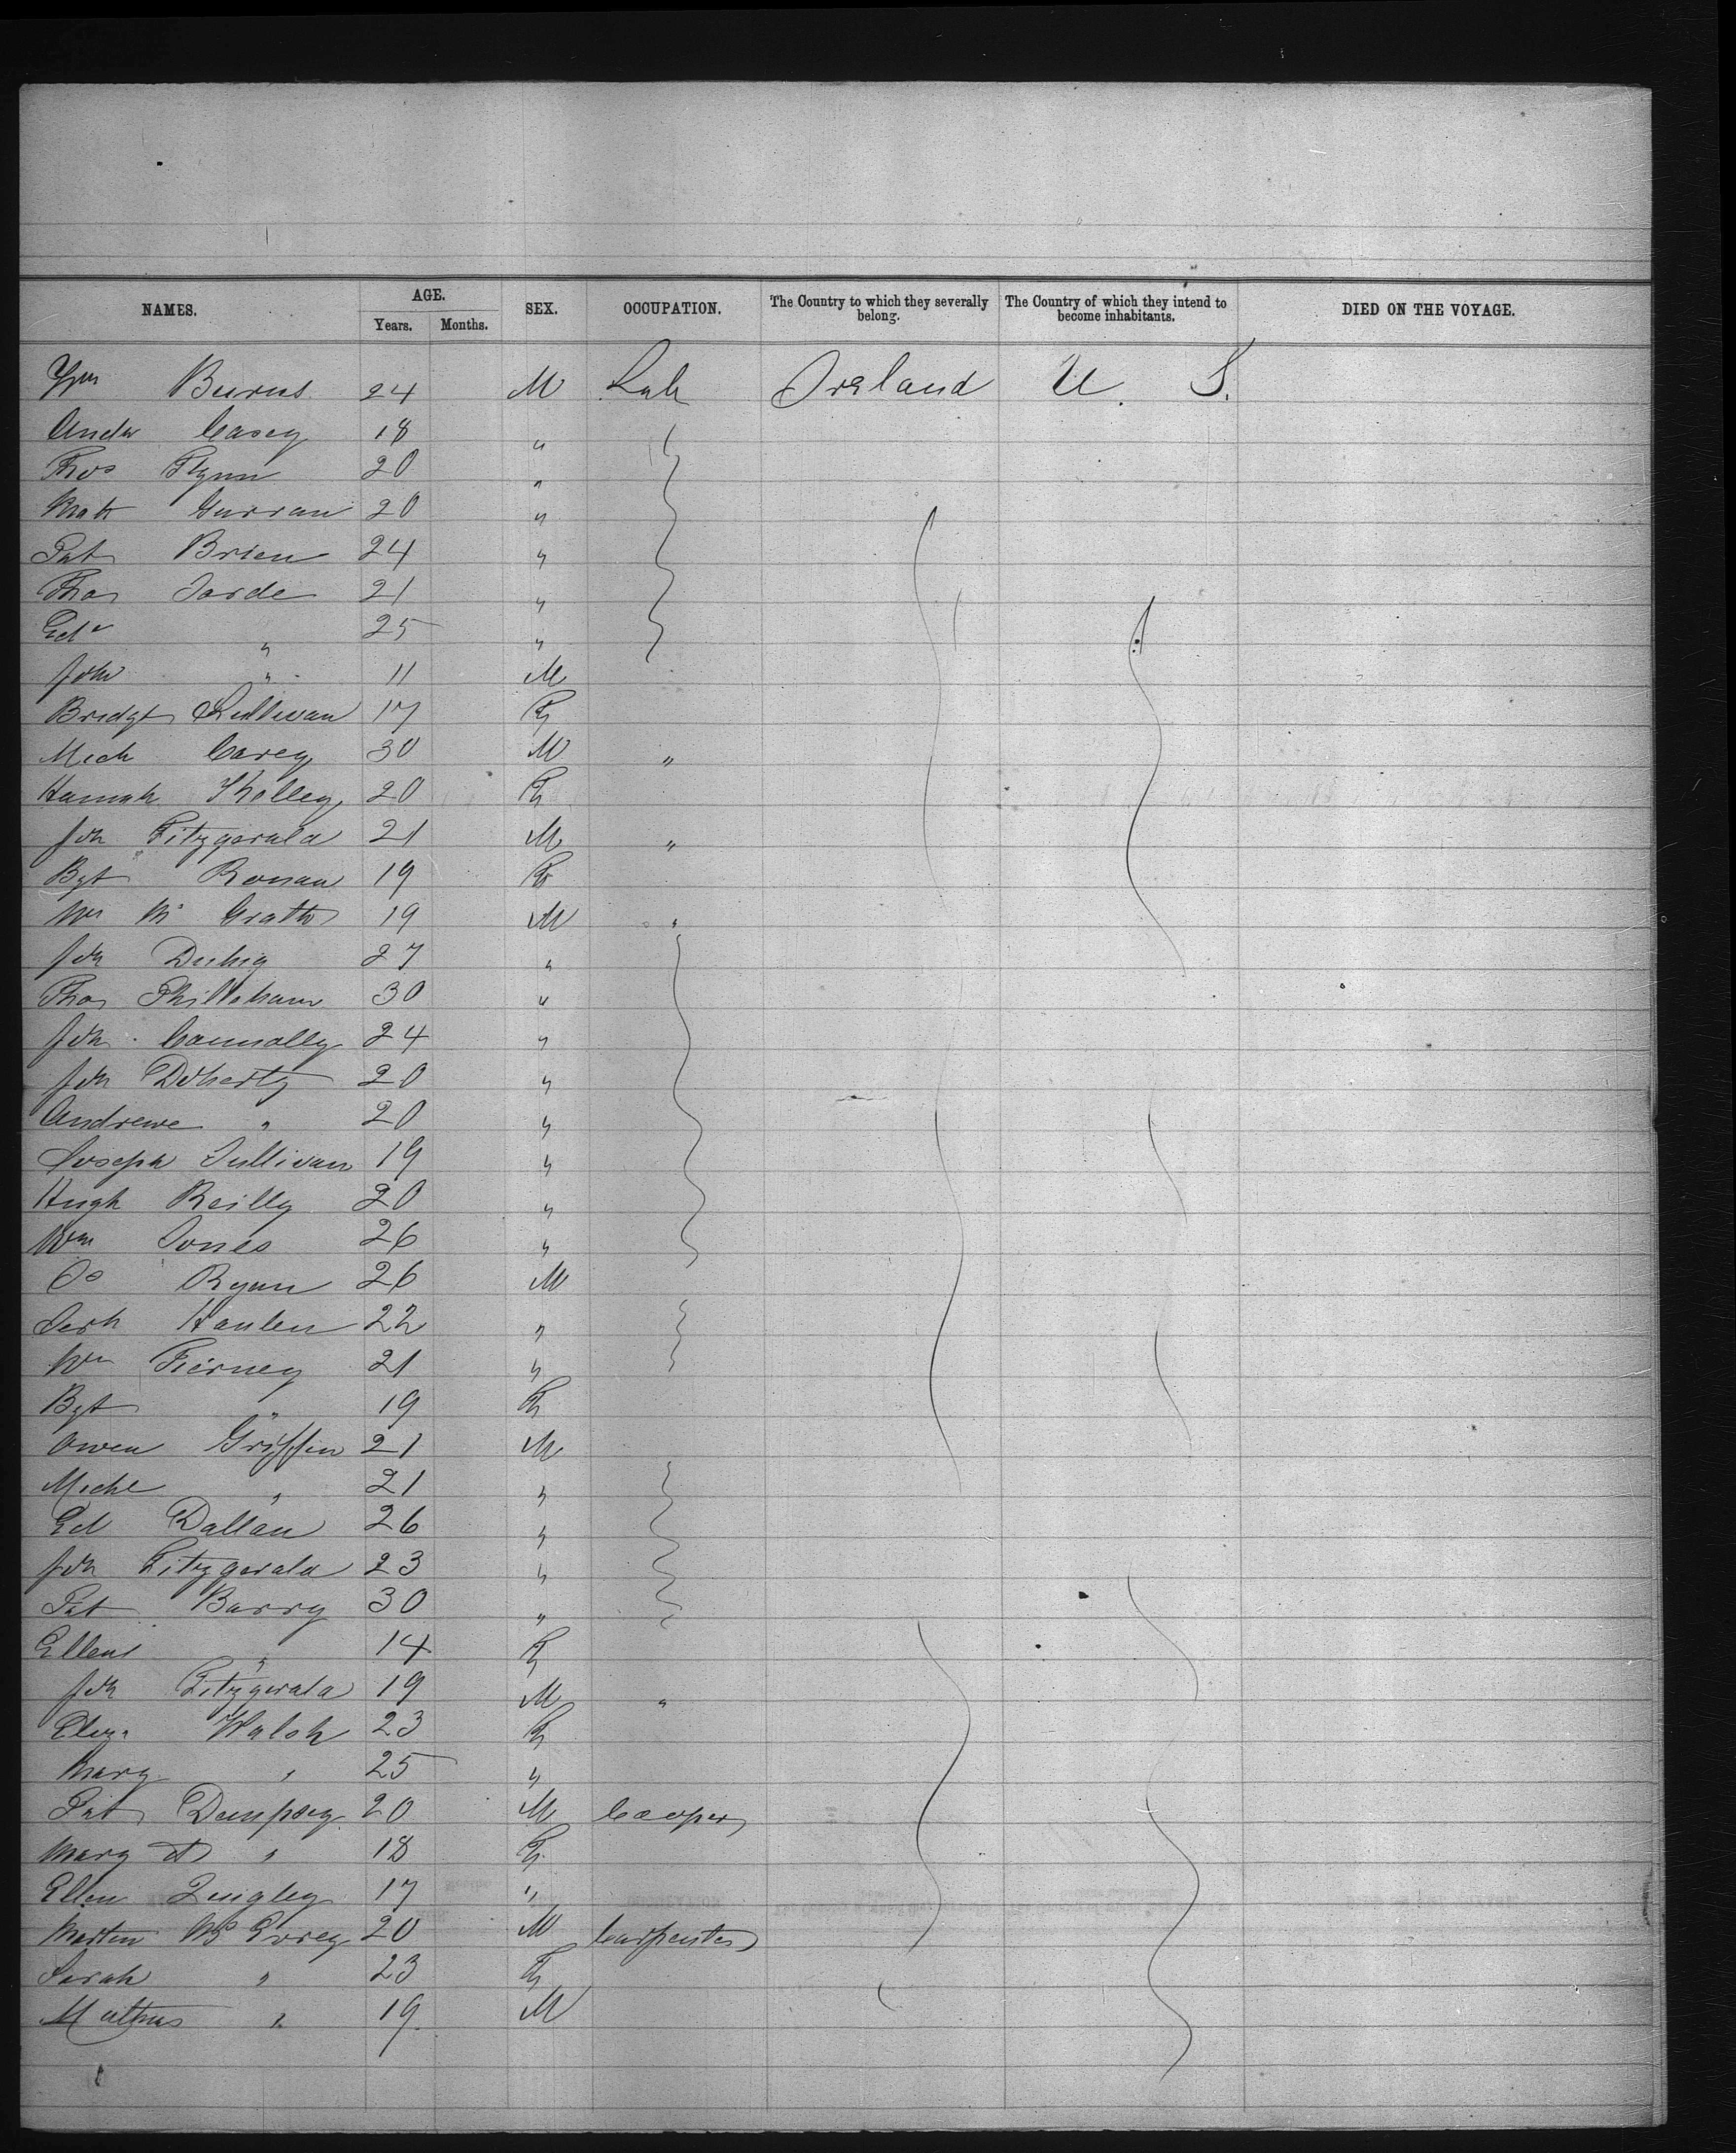 NAMES. AGE. SEX. OCCUPATION. The Country to which they severally belong. The Country of which they intend to become inhabitants. DIED ON THE VOYAGE.
Years. Months.
Wm Burns 24 M Lab Ireland U. S.
Andw Casey 18 "
Thos Flynn 20 "
Matt Curran 20 "
Pat Brien 24 "
Thos Jorde 21 "
Edw " 25 "
John " 11 M
Bridgt Sullivan 17 F
Mich Carey 30 M "
Hannah Kelley 20 F
Joh Fitzgerald 21 M "
Bgt Ronan 19 F
Wm Mc Grath 19 M "
Joh Duhig 27 "
Thos 30 "
Joh Connolly 24 "
Joh Doherty 20 "
Andrewe " 20 "
Joseph Sullivan 19 "
Hugh Reilly 20 "
Wm Jones 26 "
Ryan 26 M
Jerh Hanlen 22 "
Wm Tierney 21 "
Bgt " 19 F
Owen Griffin 21 M
Michl " 21 "
Ed Dallan 26 "
Joh Fitzgerald 23 "
Pat Barry 30 "
Ellen " 14 F
Joh Fitzgerald 19 M "
Eliza Walsh 23 F
Mary " 25 "
Pat Dempsey 20 M Cooper
Margt " 18 F
Ellen Quigley 17 "
Martin Mc 20 M Carpenter
Sarah " 23 F
" 19 M